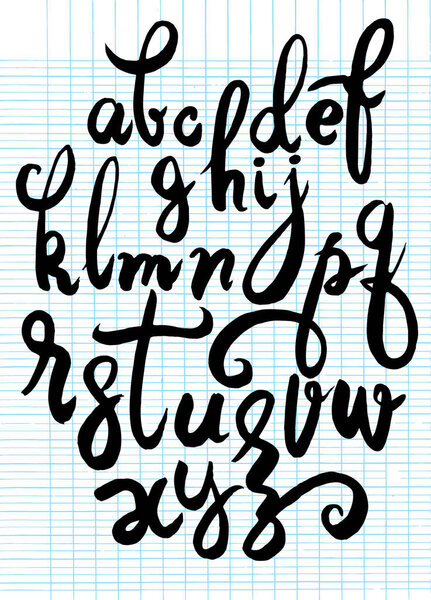 abcdef
ghij
klmnopq
rstuvw
xyz